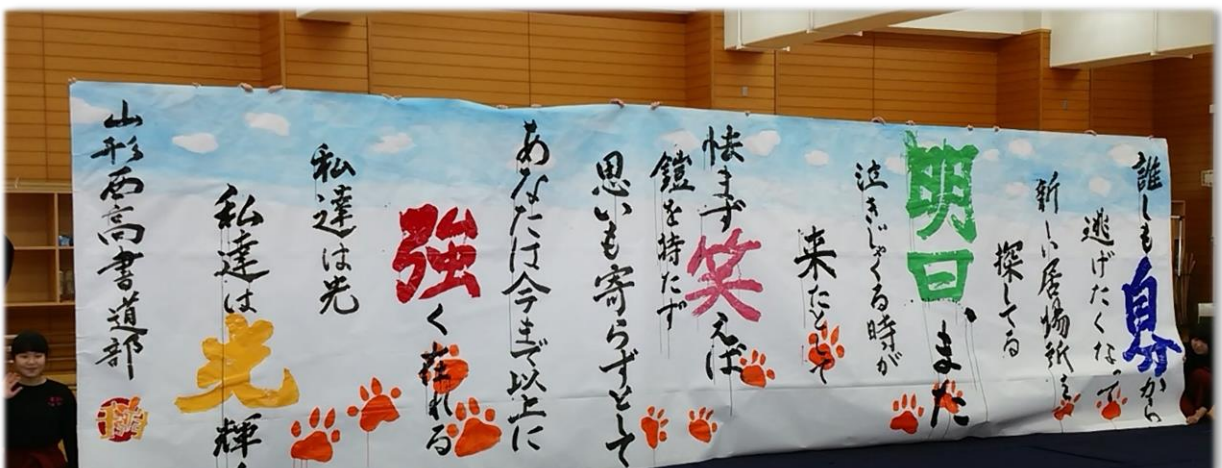 誰しも自分から
逃げたくなって
新しい居場所を
探してる
明日、また
泣きじゃくる時が
来たとして
怯まず笑えば
鎧を持たず
思いも寄らずとして
あなたは今まで以上に
強く在れる
私達は光
私達は光輝
山形西高書道部